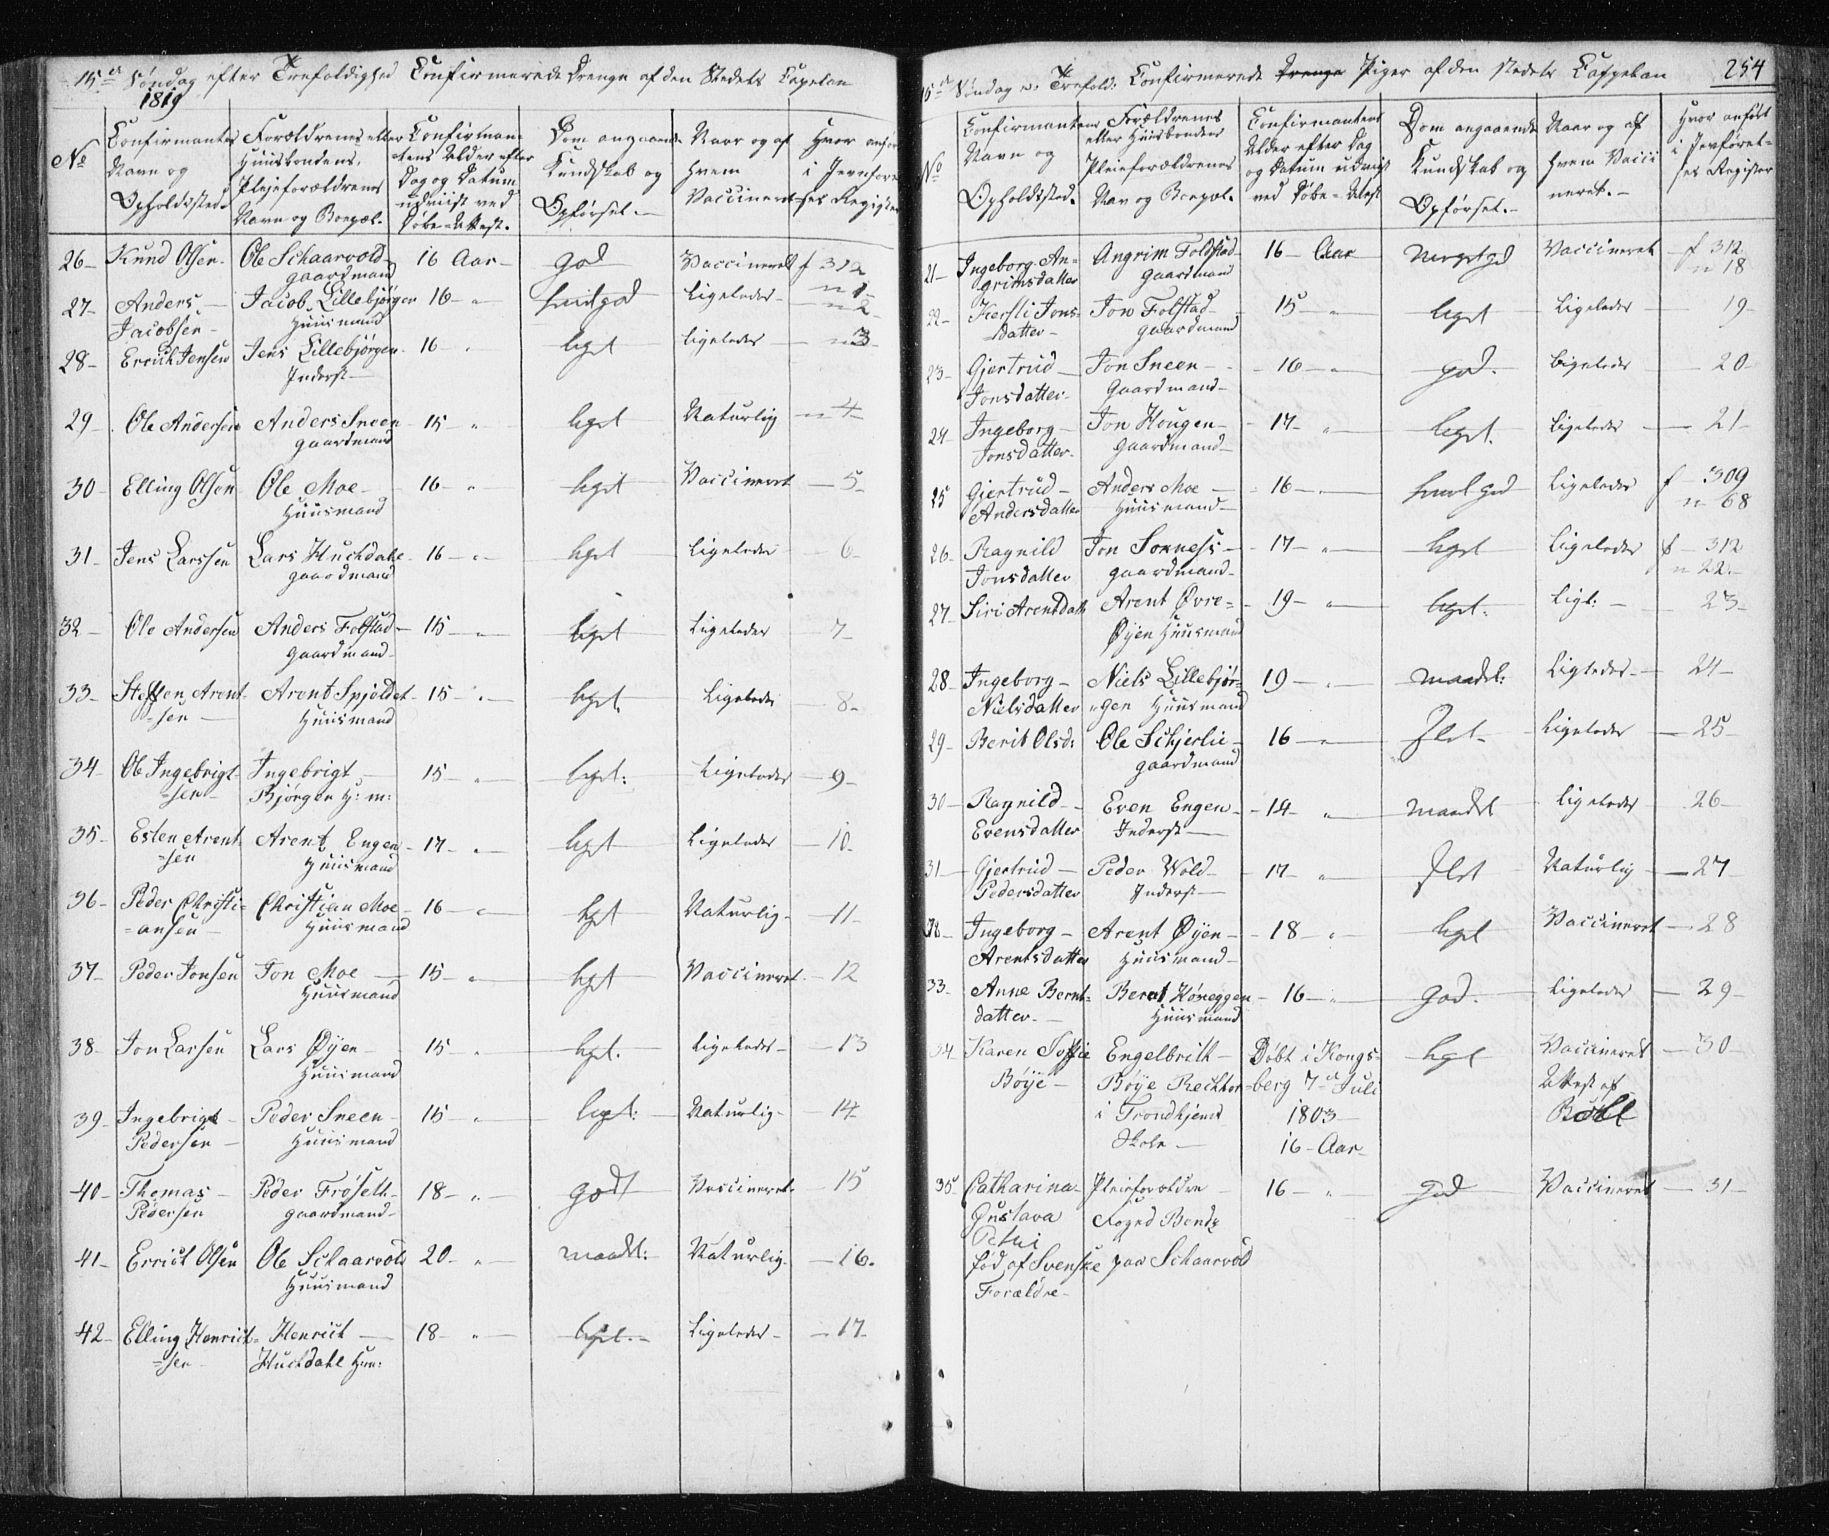 15de Søndag efter Trefoldighed Confirmerede Drenge af den Stedets Capelan
1819
No
Confirmantens Navn og Opholdssted.
Forældrenes eller Huusbondens, Plejeforældrenes Navn og Boepæl.
Confirmantens Alder efter Dag og Datum udviist ved Døbe-Attest.
Dom angaaende Kundskab og Opførsel.
Naar og af Hvem Vaccineret
Hvor anført i Jevnførelses Registeret
26 Knud Olsen Ole Schaarvold gaardmand 16 Aar god Vaccineret f 312 n 1
27 Anders Jacobsen Jacob Lillebjørgen Huusmand 16 " Ligeledes n 2
28 Errich Jensen Jens Lillebjørgen Inderst 16 " liget Ligeledes n 3
29 Ole Andersen Anders Sneen gaardmand 15 " liget Naturlig n 4
30 Elling Olsen Ole Moe Huusmand 16 " liget Vaccineret 5
31 Jens Larssen Lars Huchdahl gaardmand 16 " liget Ligeledes 6
32 Ole Andersen Anders Folstad gaardmand 15 " liget Ligeledes 7
33 Steffen Arentsen Arent Spjeldet Huusmand 15 " liget Ligeledes 8
34 Ole Ingebrigtsen Ingebrigt Bjørgen H: m: 15 " liget: Ligeledes 9
35 Esten Arentsen Arent Engen Huusmand 17 " liget Ligeledes 10
36 Peder Christiansen Christian Moe Huusmand 16 " liget Naturlig 11
37 Peder Jonsen Jon Moe Huusmand 15 " liget Vaccineret 12
38 Jon Larsen Lars Øyen Huusmand 15 " liget. Ligeledes 13
39 Ingebrigt Pedersen Peder Sneen Huusmand 15 " liget: Naturlig 14
40 Thomas Pedersen Peder Frøseth gaardmand 18 " godt Vaccineret 15
41 Errich Olsen Ole Schaarvold Huusmand 20 " maadel: Naturlig 16.
42 Elling Henrichsen Henrich Huchdahl Hm: 18 " liget. Ligeledes 17
254
15de Søndag e: Trefold: Confirmerede Drenge Piger af den Stedets Capellan
No
Confirmantens Navn og Opholdsted.
Forældrenes eller Huusbondens Pleieforældrenes Navn og Boepæl.
Confirmantens Alder efter Dag og Datum udviist ved Døbe-Attest
Dom angaaende Kundskab og Opførsel.
Naar og af Hvem Vaccineret.
Hvor anført i Jevnførelses Register
21 Ingeborg Angrimsdatter Angrim Foldstad gaardmand 16 Aar meget god Vaccineret f 312 n 18
22 Kersti Jonsdatter Jon Folstad gaardmand 15 " liget Ligeledes 19
23 Gjertrud Jonsdatter Jon Sneen Gaardmand 16 " god. Ligeledes 20
24 Ingeborg Jonsdatter Jon Hougen gaardmand 17 " liget. Ligeledes 21
25 Gjertrud Andersdatter Anders Moe Huusmand 16 " Ligeledes f 309 n 68
26 Ragnild Jonsdatter Jon Sorness gaardmand 17 " liget Ligeledes f 312 n 22
27 Siri Arentdatt Arent Øvre-Øyen Huusmand 19 " liget. Ligl: 23
28 Ingeborg Nielsdatter Niels Lillebjørgen Huusmand 19 " maadel: Ligeledes 24
29 Berit Olsd: Ole Schjerlie gaardmand 16 " Slet Ligeledes 25
30 Ragnild Evensdatter Even Engen Inderst 14 " maadel Ligeledes 26
31 Gjertrud Pedersdatter Peder Wold Inderst 17 " Slet Naturlig 27
32 Ingeborg Arentsdatter Arent Øyen Huusmand 18 " liget Vaccineret 28
33 Anne Berntdatter Bernt Høneggen Huusmand 16 " god. Ligeledes 29
34 Karen Soffie Bøye Engelbrith Bøye Recktor i Trondhjems Skole Døbt i Kongsberg 7de Juli 1803 16 Aar liget Vaccineret Attest af 30
35 Catharina Gustava Petri fød af Svenske Forældre Pleieforældre Foged Bendz paa Schaarvold 16 " god Vaccineret 31